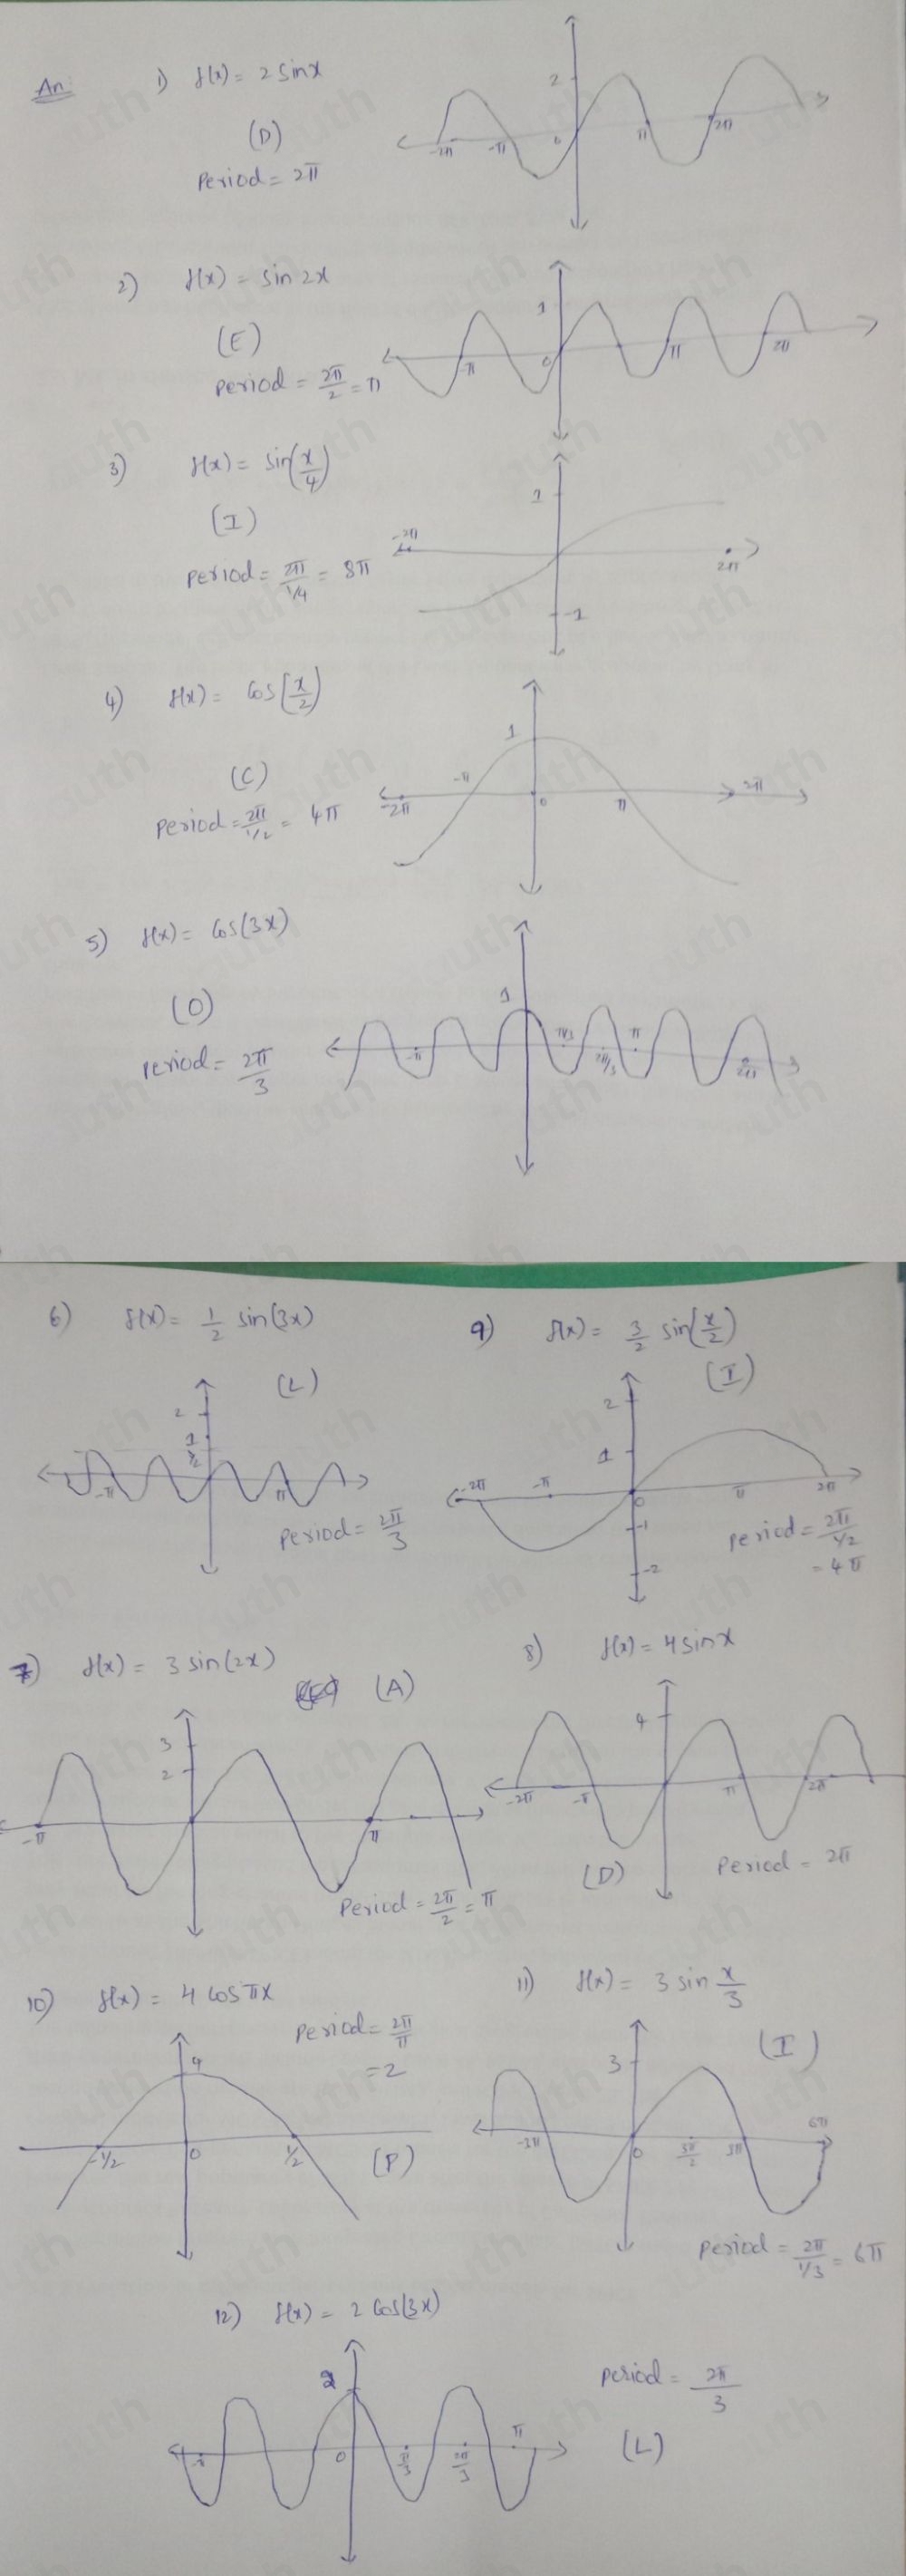 Ans:
1) f(x) = 2 sinx
(D)
Period = 2π
2
-2π -π 0 π 2π
2) f(x) = sin 2x
(E)
Period = 2π/2 = π
1
-π 0 π 2π
3) f(x) = sin(x/4)
(I)
Period = 2π/1/4 = 8π
1
-2π 2π
-1
4) f(x) = cos(x/2)
(C)
Period = 2π/1/2 = 4π
1
-π
-2π 0 π 2π
5) f(x) = cos(3x)
(O)
Period = 2π/3
1
-π π/3 2π/3 π 2π
6) f(x) = 1/2 sin(3x)
(L)
2
1
1/2
-π π
Period = 2π/3
9) f(x) = 3/2 sin(x/2)
(I)
2
1
-2π -π 0 π 2π
-1
-2
Period = 2π/1/2
= 4π
7) f(x) = 3 sin(2x)
(A)
3
2
-π π
Period = 2π/2 = π
8) f(x) = 4 sinx
4
-2π -π π 2π
(D) Period = 2π
10) f(x) = 4 cos πx
Period = 2π/π
= 2
4
-1/2 0 1/2
(P)
11) f(x) = 3 sin x/3
(I)
3
-3π 0 3π/2 3π 6π
Period = 2π/1/3 = 6π
12) f(x) = 2 cos(3x)
Period = 2π/3
(L)
2
0 π/3 2π/3 π